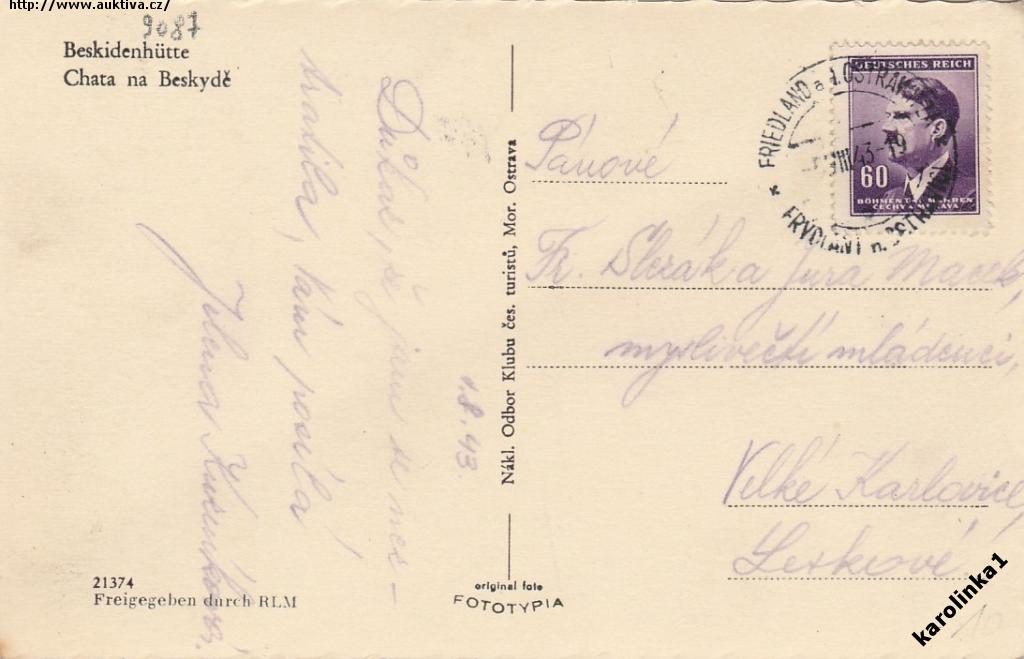 http://www.auktiva.cz/
9087
Beskidenhütte
Chata na Beskydě
Důkaz, že jsem se nes-
tratila, Vám posílá
Jilena
1.8.43
Nákl. Odbor Klubu čes. turistů, Mor. Ostrava
FRIEDLAND a.d. OSTRAWITZA
FRÝDLANT n. OSTRAVICÍ
VIII 43-19
DEUTSCHES REICH
60
BÖHMEN UND MÄHREN
ČECHY A MORAVA
Pánové
Fr. Slezák a Jura Macek,
myslivečtí mládenci,
Velké Karlovice,
Leskové
21374
Freigegeben durch RLM
original foto
FOTOTYPIA
karolinka1
10